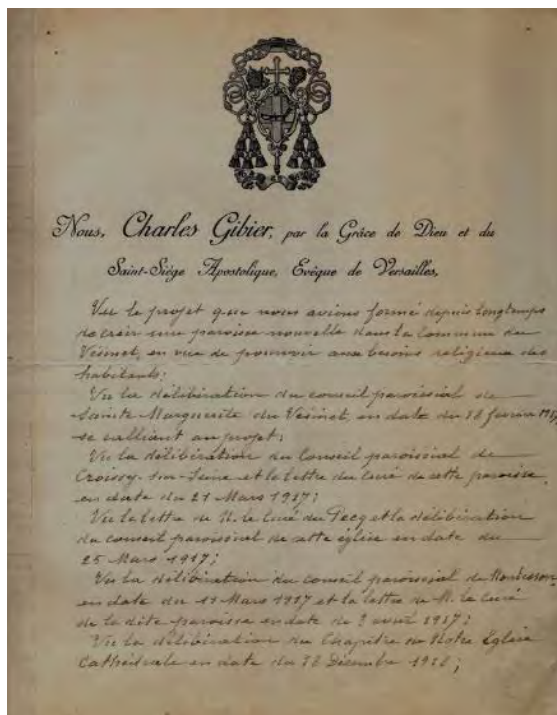 Nous, Charles Gibier, par la Grâce de Dieu et du
Saint-Siège Apostolique, Evêque de Versailles,
Vu le projet que nous avions formé depuis longtemps
de créer une paroisse nouvelle dans la Commune du
Vésinet, en vue de pourvoir aux besoins religieux des
habitants;
Vu la délibération du conseil paroissial de
Sainte Marguerite du Vésinet, en date du février 1917
se ralliant au projet;
Vu la délibération du Conseil paroissial de
Croissy-sur-Seine et la lettre du Curé de cette paroisse
en date du 21 Mars 1917;
Vu la lettre de M. le Curé du Pecq et la délibération
du conseil paroissial de cette église en date du
25 Mars 1917;
Vu la délibération du conseil paroissial de Montesson
en date du 11 Mars 1917 et la lettre de M. le Curé
de la dite paroisse en date du 2 avril 1917;
Vu la délibération du Chapitre de Notre Eglise
Cathédrale en date du Décembre;